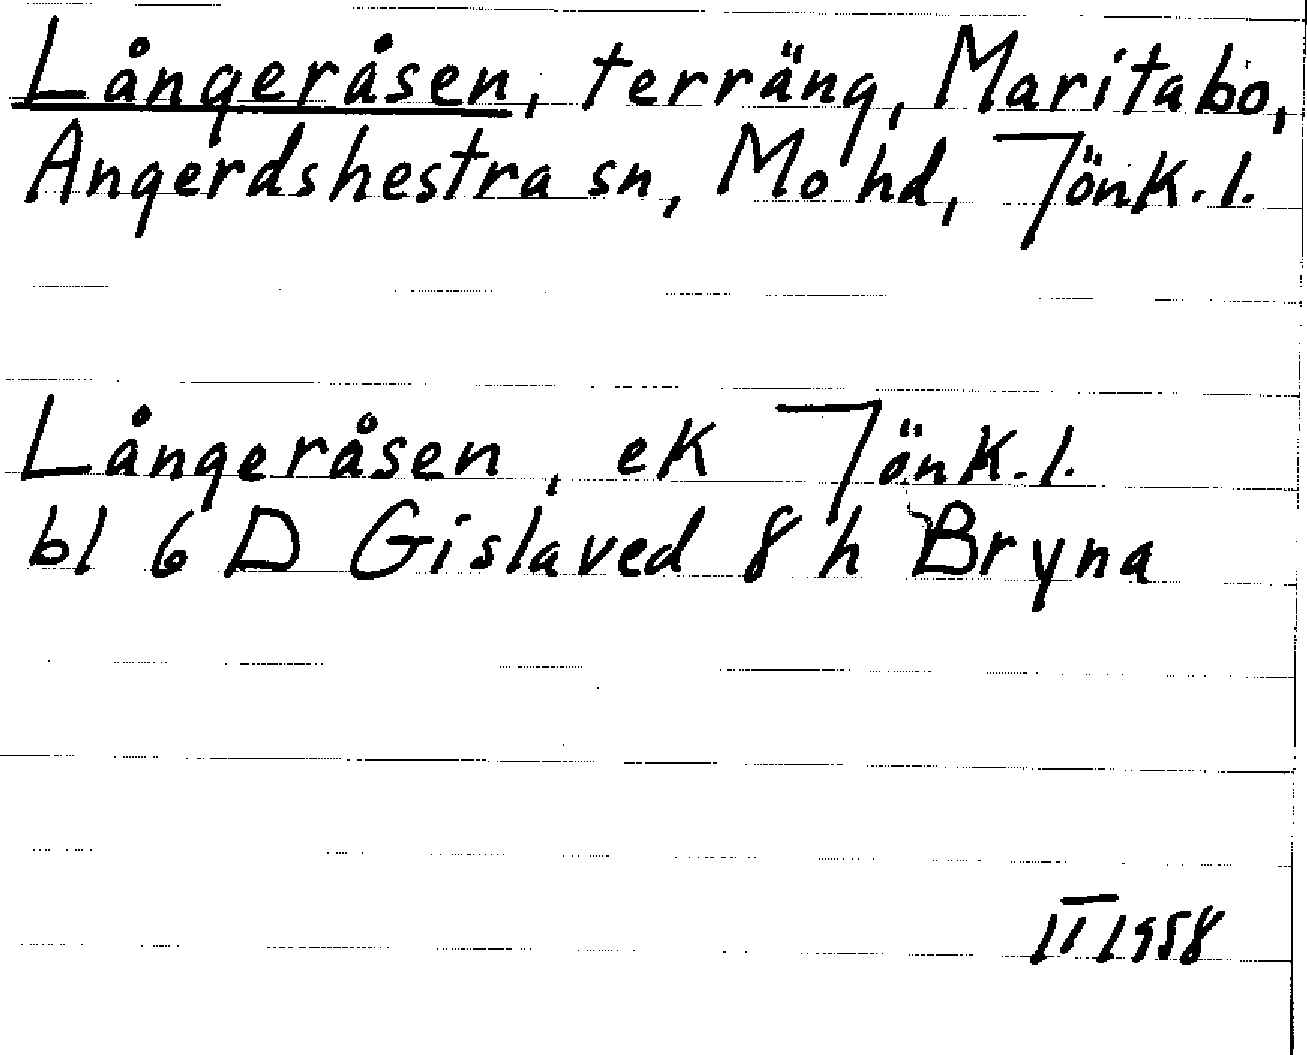 Långeråsen, terräng, Maritabo,
Angerdshestra sn, Mo hd, Jönk. l.
Långeråsen, ek Jönk. l.
bl 6 D Gislaved 8 h Bryna
II 1958